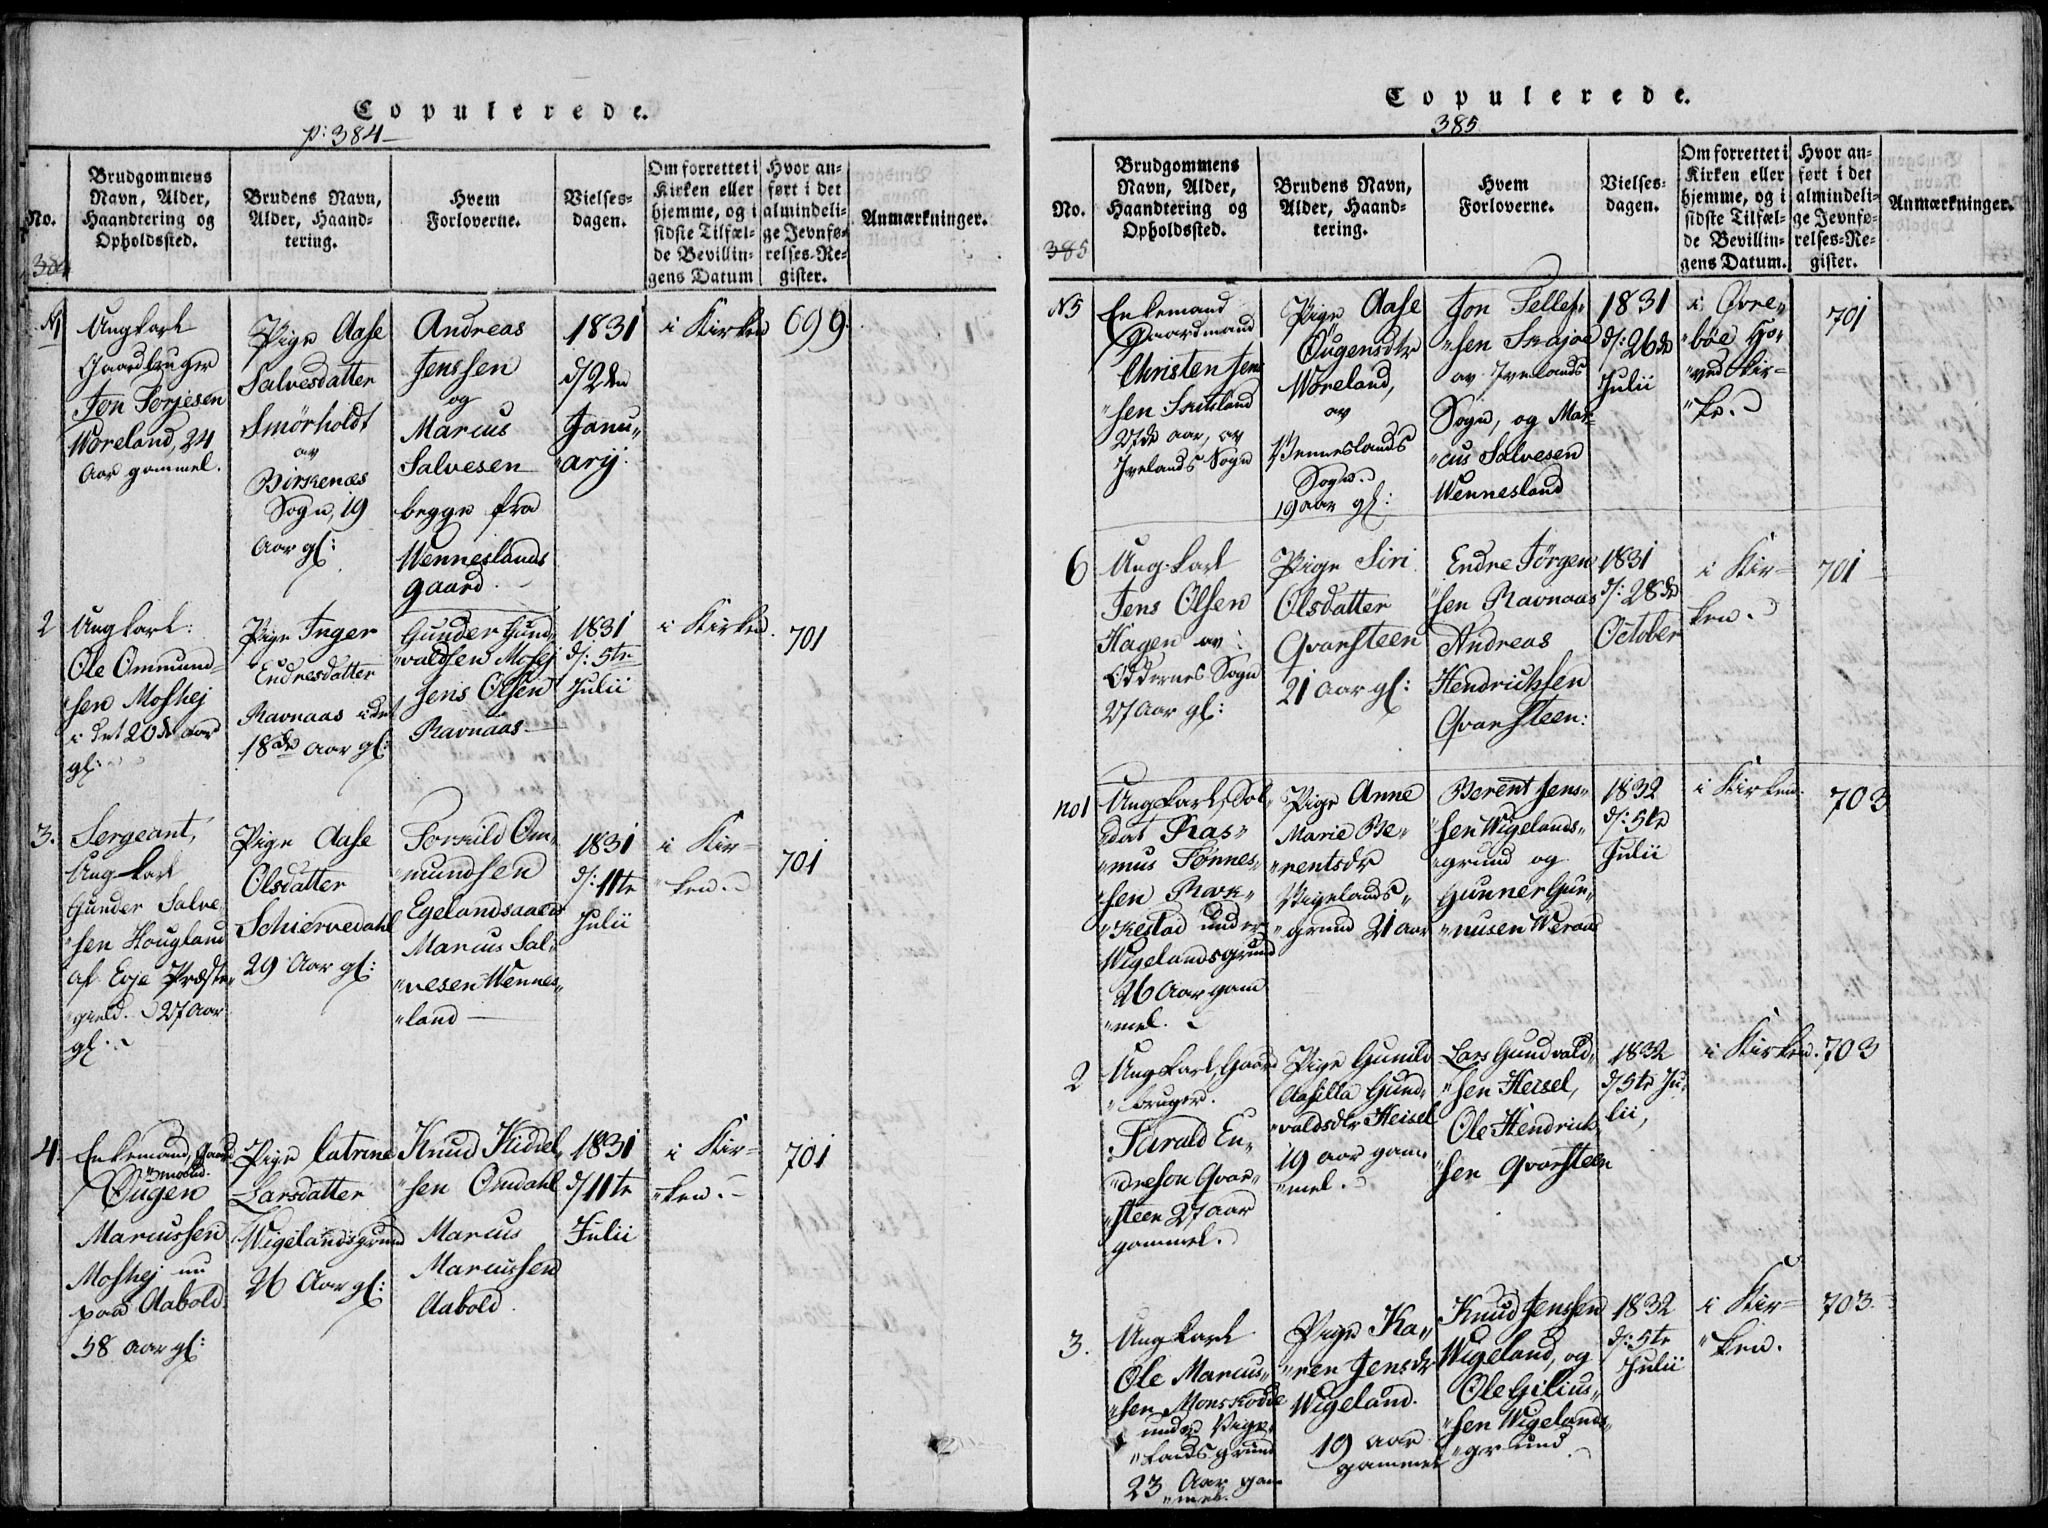 Copulerede.
p: 384
No.
384
Brudgommens
Navn, Alder,
Haandtering og
Opholdssted.
Brudens Navn,
Alder, Haand-
tering.
Hvem
Forloverne.
Vielses-
dagen.
Om forrettet i
Kirken eller
hjemme, og i
sidste Tilfæl-
de Bevillin-
gens Datum
Hvor an-
ført i det
almindeli-
ge Jevnfø-
relses-Re-
gister.
Anmærkninger.
N1
Ungkarl
Gaardbruger
Jon Torjesen
Woreland, 24
Aar gammel.
Pige Aase
Salvesdatter
Smörholdt
av
Birkenæs
Sogn, 19
Aar gl:
Andreas
Jenssen
og
Marcus
Salvesen
begge fra
Wenneslands
gaard.
1831
d/2den
Janu„
„arij.
i Kirken
699.
2
Ungkarl:
Ole Ommund„
„sen Moshej
i det 20de aar
gl:
Pige Inger
Endresdatter
Ravnaas i det
18de Aar gl:
Gunder Gund„
„valdsen Mosej
Jens Olsen
Ravnaas
1831
d/: 5te
Julii
i Kirken.
701
3.
Sergeant,
Ungkarl
Gunder Salve„
„sen Hougland
af Evje Præste„
„gield. 27 Aar
gl.
Pige Aase
Olsdatter
Schiervedahl
29 Aar gl:
Torkild Om„
„mundsen
Egelandsaaen
Marcus Sal„
„vesen Wennes„
„land
1831
d/: 11te
Julii
i Kir=
„ken.
701
4.
Enkemand, Gaard
„mand.
Øugen
Marcussen
Moshej nu
paa Aabold.
58 Aar gl:
Pige Catrine
Larsdatter
Wigelandsgrund
26 Aar gl:
Knud Kittel„
„sen Omdahl
Marcus
Marcussen
Aabold.
1831
d/11te
Julii
i Kir=
„ken.
701
Copulerede.
385
No.
385
Brudgommens
Navn, Alder,
Haandtering og
Opholdssted.
Brudens Navn,
Alder, Haand-
tering.
Hvem
Forloverne.
Vielses-
dagen.
Om forrettet i
Kirken eller
hjemme, og i
sidste Tilfæl-
de Bevillin-
gens Datum.
Hvor an-
ført i det
almindeli-
ge Jevnfø-
relses-Re-
gister.
Anmærkninger.
N5
Enkemand
Gaardmand
Christen Jens
„sen
27de aar, av
Ivelands Sogn
Pige Aase
Øugensdtr
Woreland,
av
Venneslands
Sogn.
19 aar gl:
Jon Tellef„
„sen Skajoe
av Ivelands
Sogn, og Mar=
„cus Salvesen
Wennesland
1831
d/: 26de
Julii
i Øvre„
„bøe Ho„
„ved Kir=
„ke.
701
6
Ung-karl
Jens Olsen
Hagen av
Oddernes Sogn
27 Aar gl:
Pige Siri
Olsdatter
Qvarsteen
21 Aar gl:
Endre Jörgen
„sen Ravnaas
Andreas
Hendrichsen
Qvarsteen:
1831
d/: 28de
October
i Kir=
ken.
701
no1
Ungkarl, Sol„
„dat Ras„
„mus Tønnes„
„sen Birk„
„kestad under
Wigelandsgrund
26 Aar gam
„mel.
Pige Anne
Marie Be„
„rentsdr
Vigelands„
„grund 21 aar
Berent Jens„
„sen Wigelands„
„grund og
Gunner Gun„
„nusen Weraas
1832
d/: 5te
Julii
i Kirken.
703
2
Ungkarl, Gaard
„bruger.
Tarald En„
„dreson Qvar„
„steen 27 aar
gammel.
Pige Gunild
Aasilla Gund„
„valdsdtr Heisel
19 aar gam„
„mel.
Lars Gundvald„
„sen Heisel,
Ole Hendrich
„sen Qvarsteen
1832
d/5te Ju„
lii,
i Kirken.
703
3.
Ungkarl
Ole Marcus„
„sen Monskodde
under Vige„
„landsgrund
23 Aar gam
„mel.
Pige Ka„
„ren Jensdr
Wigeland.
19 aar
gammel
Knud Jenssen
Wigeland, og
Ole Gilius„
„sen Wigelands„
„grund.
1832
d/: 5te
Julii
i Kir=
„ken.
703.